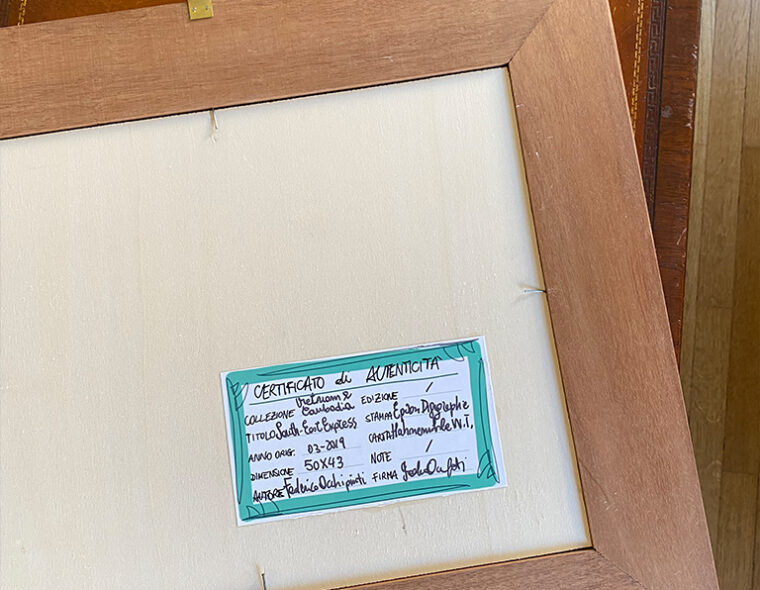 CERTIFICATO di AUTENTICITÀ
COLLEZIONE Vietnam & Cambodia EDIZIONE /
TITOLO South-East Express STAMPA Epson Digigraphie
ANNO ORIG. 03-2019 CARTA Hahnemuhle W.T.
DIMENSIONE 50X43 NOTE /
AUTORE Federico Occhipinti FIRMA